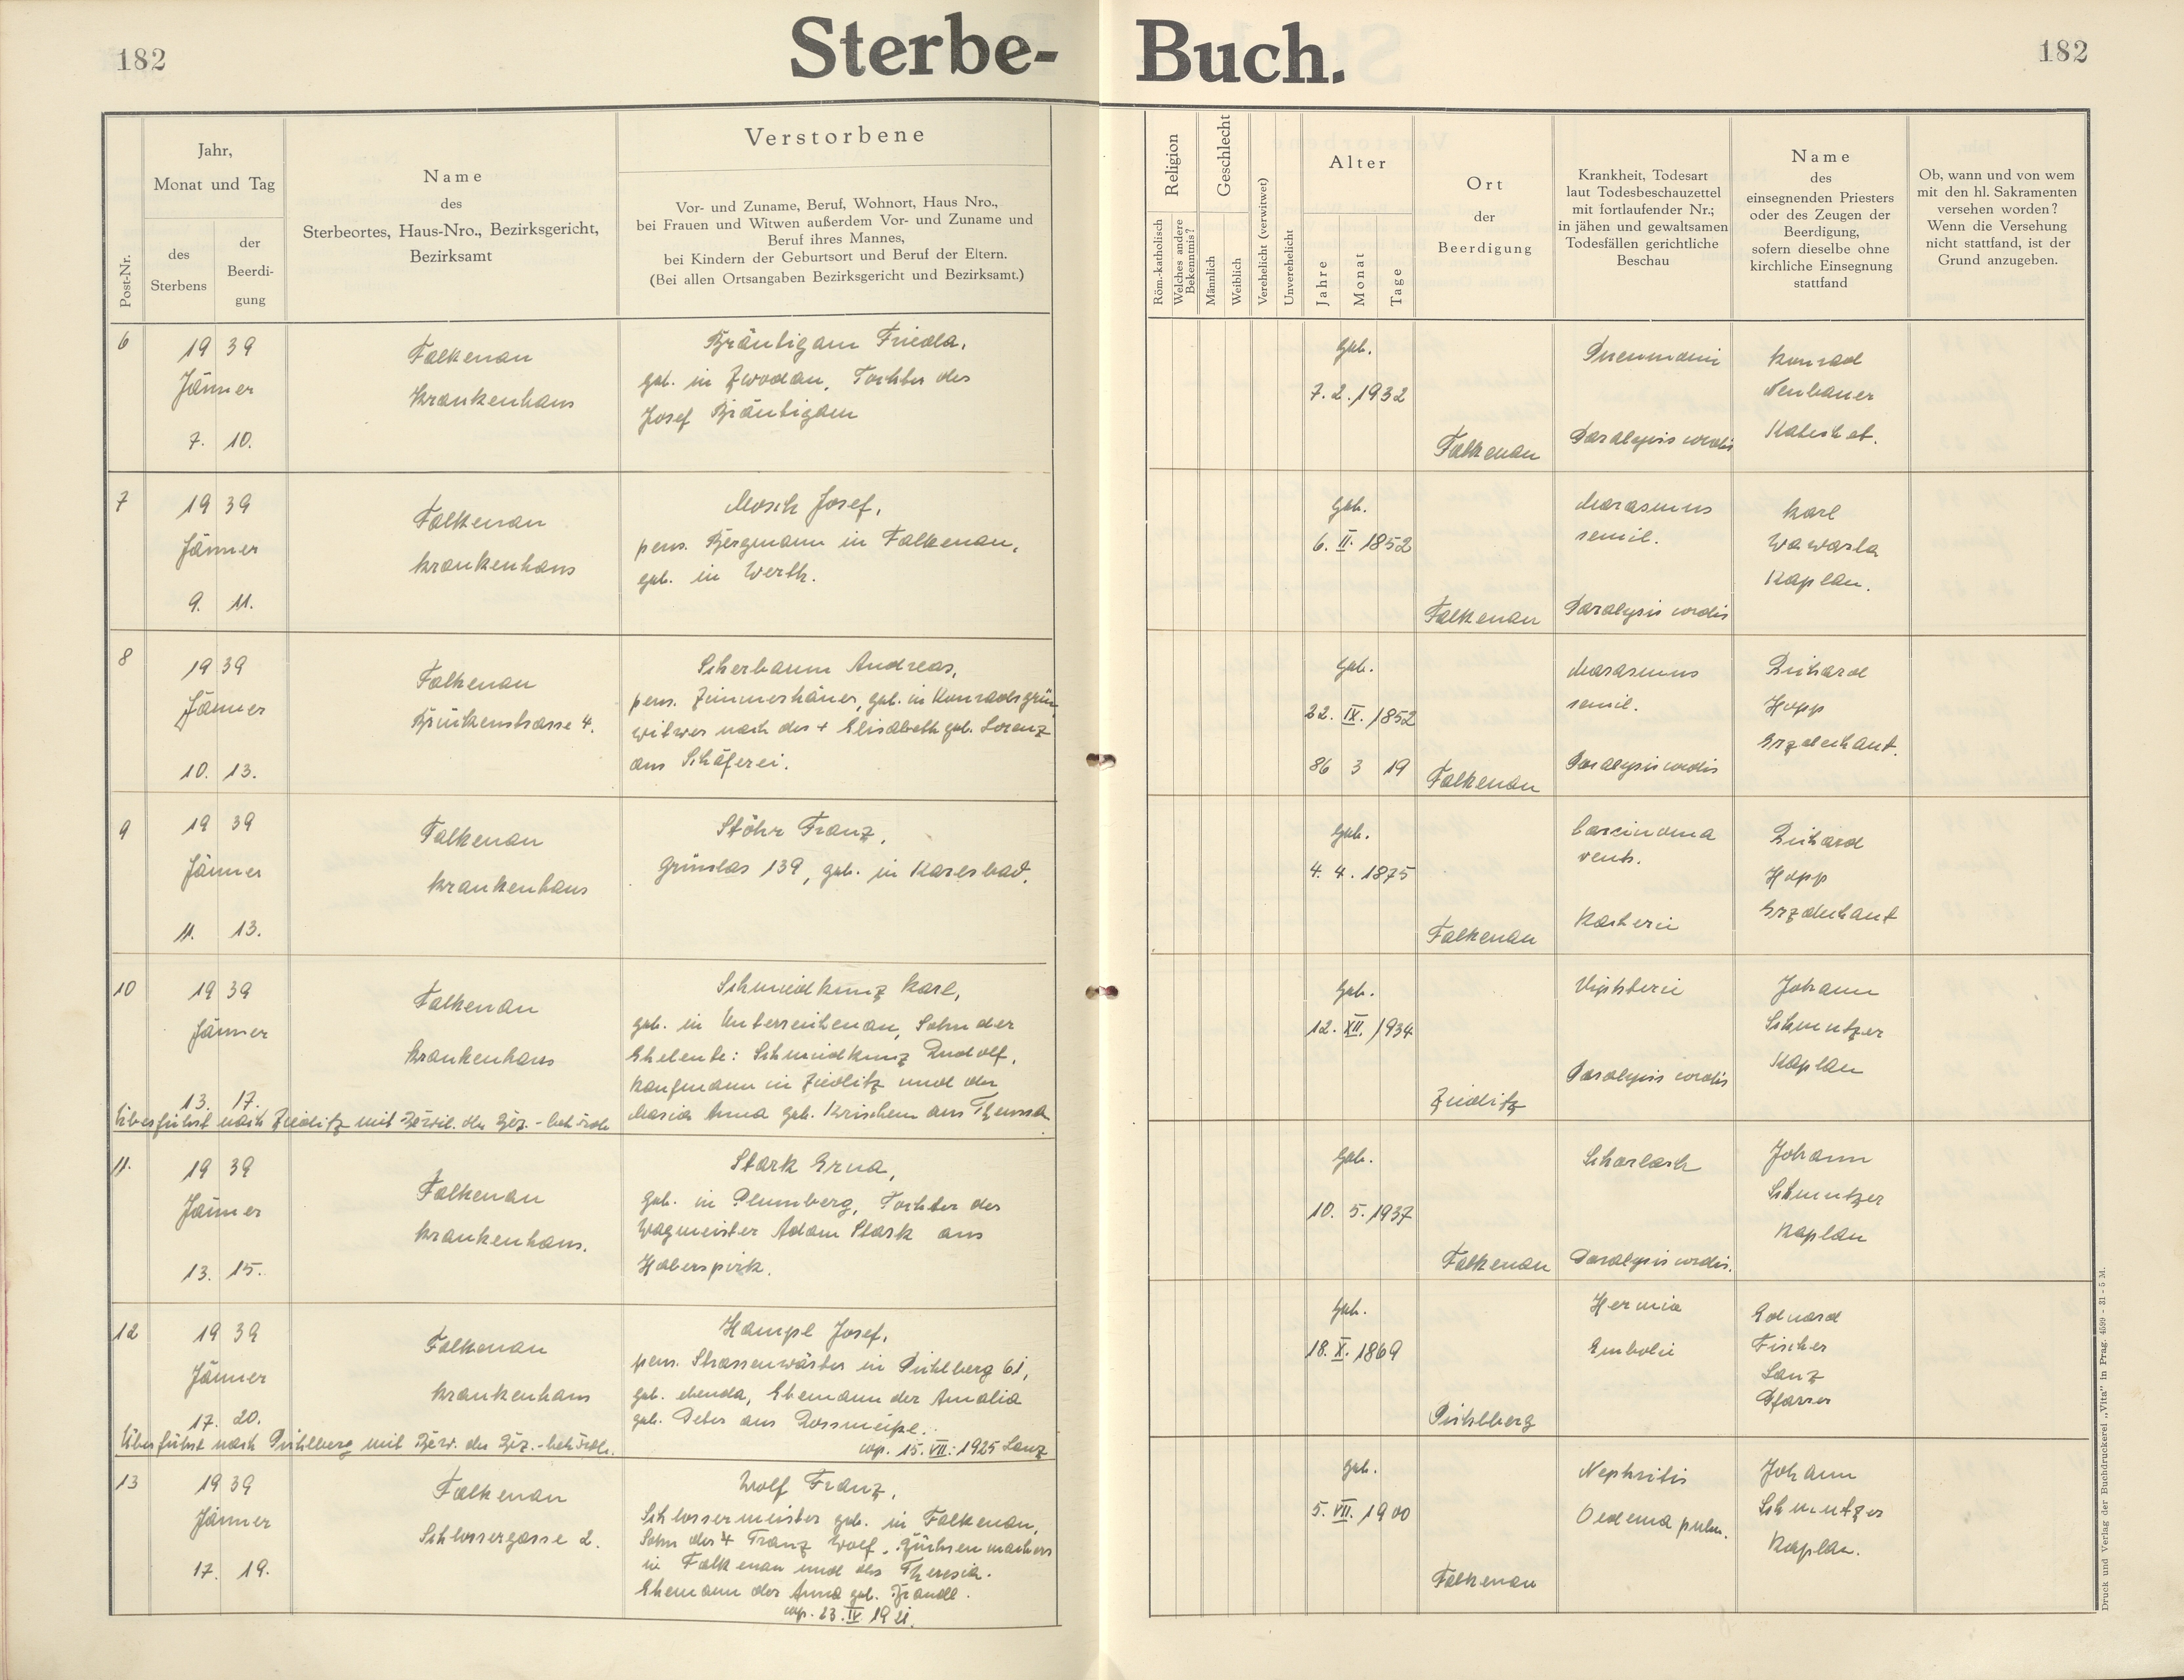 182
Sterbe-
Buch.
182
Post-Nr.
Jahr,
Monat und Tag
des
Sterbens
der
Beerdi-
gung
Name
des
Sterbeortes, Haus-Nro., Bezirksgericht,
Bezirksamt
Verstorbene
Vor- und Zuname, Beruf, Wohnort, Haus Nro.,
bei Frauen und Witwen außerdem Vor- und Zuname und
Beruf ihres Mannes,
bei Kindern der Geburtsort und Beruf der Eltern.
(Bei allen Ortsangaben Bezirksgericht und Bezirksamt.)
Religion
Röm.-katholisch
Welches andere
Bekenntnis?
Geschlecht
Männlich
Weiblich
Verehelicht (verwitwet)
Unverehelicht
Alter
Jahre
Monat
Tage
Ort
der
Beerdigung
Krankheit, Todesart
laut Todesbeschauzettel
mit fortlaufender Nr.;
in jähen und gewaltsamen
Todesfällen gerichtliche
Beschau
Name
des
einsegnenden Priesters
oder des Zeugen der
Beerdigung,
sofern dieselbe ohne
kirchliche Einsegnung
stattfand
Ob, wann und von wem
mit den hl. Sakramenten
versehen worden?
Wenn die Versehung
nicht stattfand, ist der
Grund anzugeben.
6
19 39
Jänner
7. 10.
Falkenau
Krankenhaus
Bräutigam Frieda,
geb. in Zwodau, Tochter des
Josef Bräutigam
geb.
7. 2. 1932
Falkenau
Pneumonie
Paralysis cordis
Konrad
Neubauer
Katechet.
7
19 39
Jänner
9. 11.
Falkenau
Krankenhaus
Mosch Josef,
pens. Bergmann in Falkenau,
geb. in Werth.
geb.
6. II. 1852
Falkenau
Marasmus
senil.
Paralysis cordis
Karl
Wawarla
Kaplan.
8
19 39
Jänner
10. 13.
Falkenau
Brückenstrasse 4.
Scherbaum Andreas,
pens. Zimmerhäuer, geb. in Konradsgrün
witwer nach der + Elisabeth geb. Lorenz
aus Schäferei.
geb.
22. IX. 1852
86 3 19
Falkenau
Marasmus
senil.
Paralysis cordis
Richard
Hopp
Erzdechant.
9
19 39
Jänner
11. 13.
Falkenau
Krankenhaus
Stöhr Franz,
Grünlas 139, geb. in Karlsbad.
geb.
4. 4. 1875
Falkenau
Carcinoma
ventr.
Kachexie
Richard
Hopp
Erzdechant
10
19 39
Jänner
13. 17.
Falkenau
Krankenhaus
Schmiedkunz Karl,
geb. in Unterreichenau, Sohn der
Eheleute: Schmiedkunz Rudolf,
Kaufmann in Zieditz und der
Maria Anna geb. Krischem aus Theussa
Überführt nach Zieditz mit Bewil. der Bez.-behörde
geb.
12. XII. 1934
Zieditz
Diphterie
Paralysis cordis
Johann
Schmutzer
Kaplan
11.
19 39
Jänner
13. 15.
Falkenau
Krankenhaus.
Stark Erna,
geb. in Plumberg, Tochter des
Wagmeister Adam Stark aus
Haberspirk.
geb.
10. 5. 1937
Falkenau
Scharlach
Paralysis cordis.
Johann
Schmutzer
Kaplan
12
19 39
Jänner
17. 20.
Falkenau
Krankenhaus
Hampl Josef,
pens. Strassenwärter in Pichlberg 61,
geb. ebenda, Ehemann der Amalia
geb. Peter aus Rossmeisl.
cop. 15. VII. 1925 Lanz
Überführt nach Pichlberg mit Bew. der Bez.-behörde.
geb.
18. X. 1869
Pichlberg
Hernia
Embolie
Eduard
Fischer
Lanz
Pfarrer
13
19 39
Jänner
17. 19.
Falkenau
Schlossergasse 2.
Wolf Franz,
Schlossermeister geb. in Falkenau,
Sohn des + Franz Wolf, Büchsenmachers
in Falkenau und der Theresia.
Ehemann der Anna geb. Brandl.
cop. 23. IV. 1921.
geb.
5. VII. 1900
Falkenau
Nephritis
Oedema pulm.
Johann
Schmutzer
Kaplan.
Druck und Verlag der Buchdruckerei „Vita" in Prag. 4599 - 31 - 5 M.